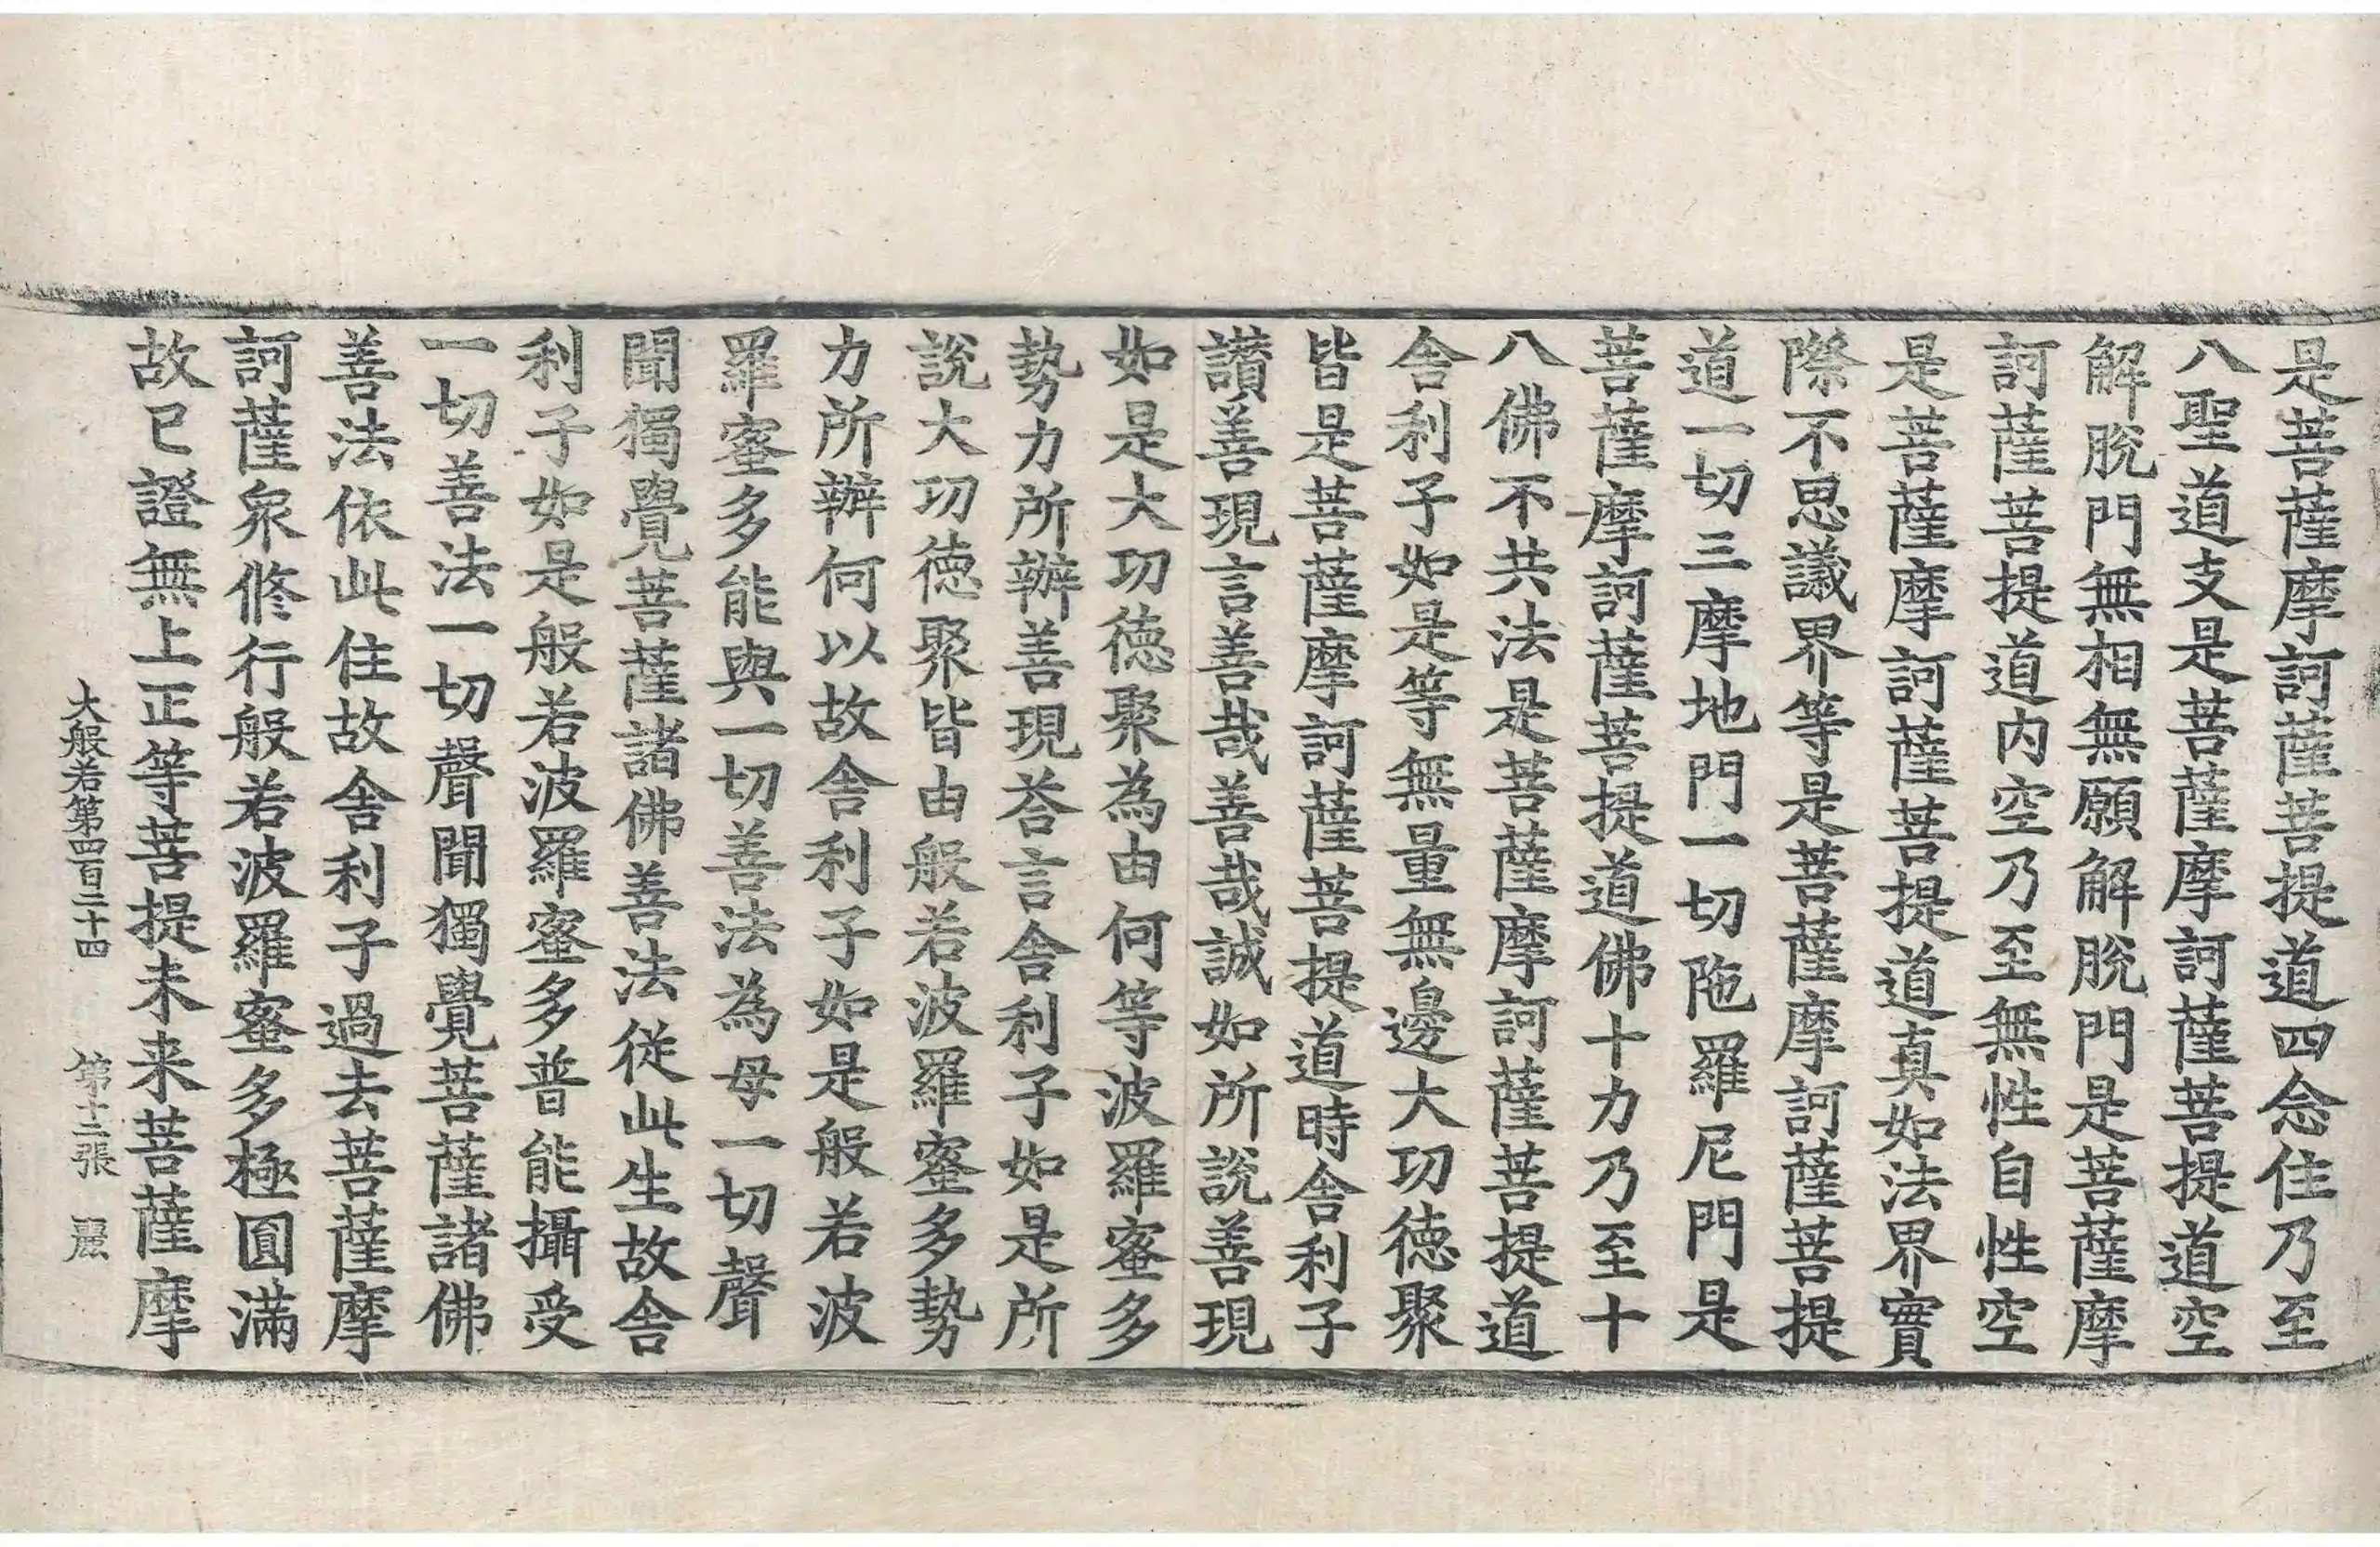 是菩薩摩訶薩菩提道四念住乃至
八聖道支是菩薩摩訶薩菩提道空
解脫門無相無願解脫門是菩薩摩
訶薩菩提道内空乃至無性自性空
是菩薩摩訶薩菩提道真如法界實
際不思議界等是菩薩摩訶薩菩提
道一切三摩地門一切陁羅尼門是
菩薩摩訶薩菩提道佛十力乃至十
八佛不共法是菩薩摩訶薩菩提道
舍利子如是等無量無邊大功德聚
皆是菩薩摩訶薩菩提道時舍利子
讃善現言善哉善哉誠如所說善現
如是大功德聚為由何等波羅蜜多
勢力所辦善現荅言舍利子如是所
說大功德聚皆由般若波羅蜜多勢
力所辦何以故舍利子如是般若波
羅蜜多能與一切善法為母一切聲
聞獨覺菩薩諸佛善法從此生故舍
利子如是般若波羅蜜多普能攝受
一切善法一切聲聞獨覺菩薩諸佛
善法依此住故舍利子過去菩薩摩
訶薩衆修行般若波羅蜜多極圓滿
故已證無上正等菩提未来菩薩摩
大般若第四百二十四 第十二張 麗